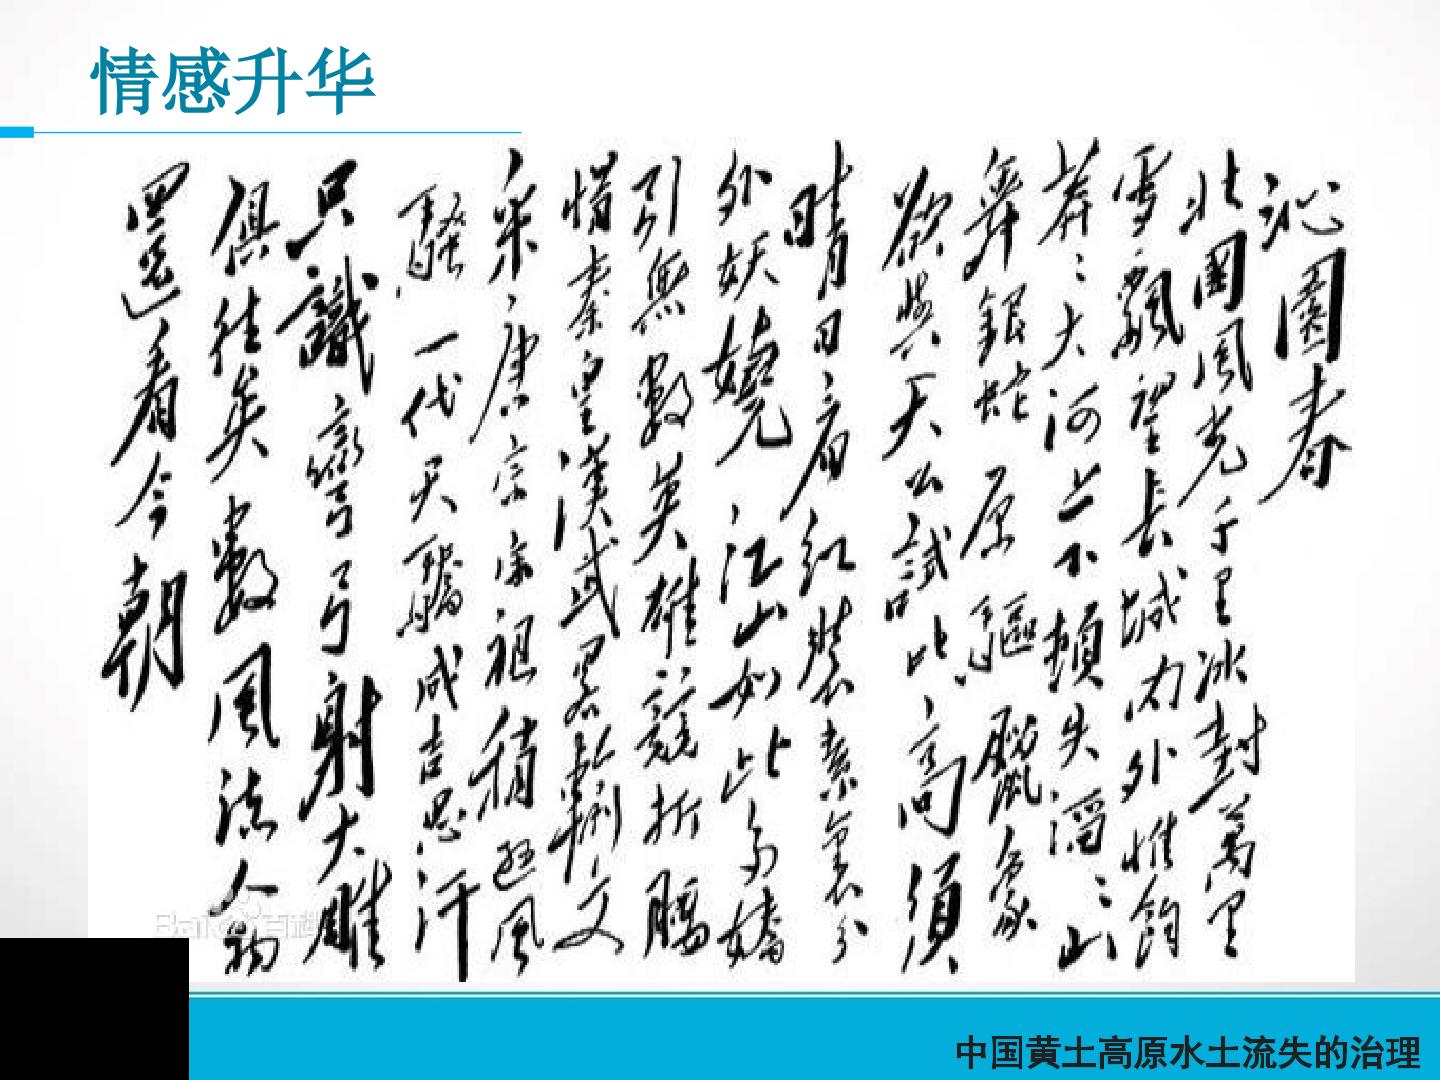 情感升华
沁園春
北國風光千里冰封萬里
雪飄望長城内外惟餘
莽〻大河上下頓失滔〻山
舞銀蛇原驅臘象
欲與天公試比高須
晴日看紅裝素裹分
外妖嬈江山如此多嬌
引無數英雄競折腰
惜秦皇漢武略輸文
采唐宗宋祖稍遜風
騷一代天驕成吉思汗
只識彎弓射大雕
俱往矣數風流人物
還看今朝
中国黄土高原水土流失的治理